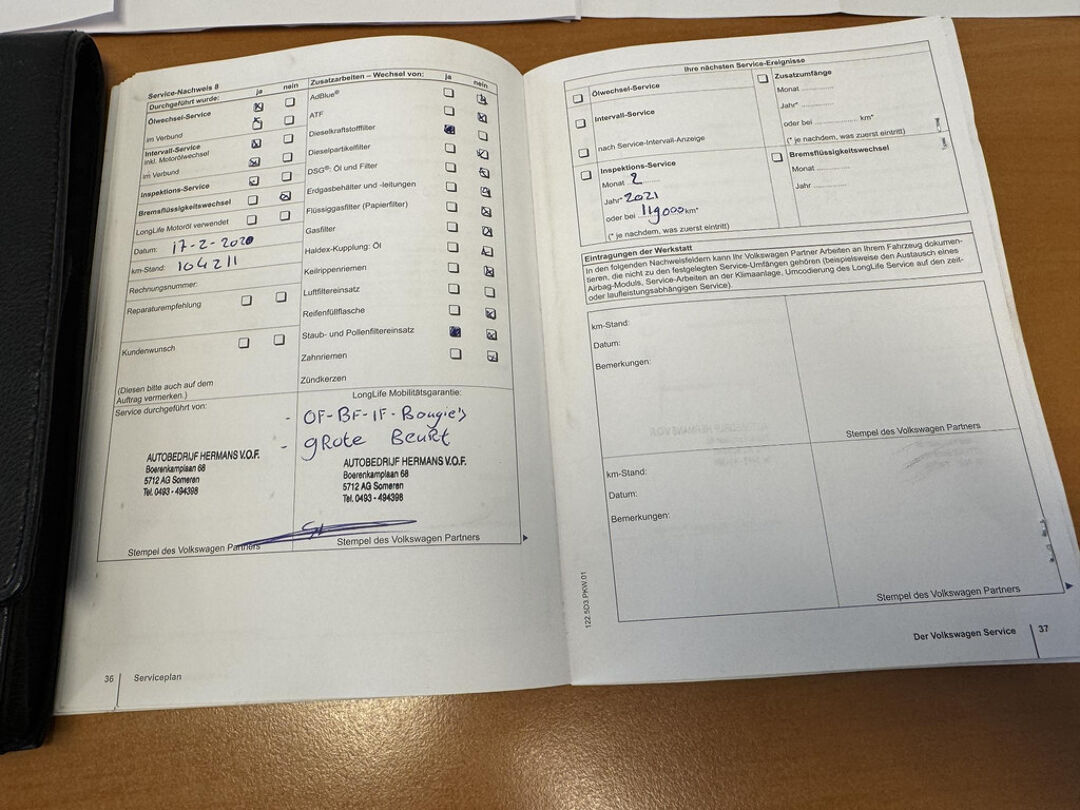 Service-Nachweis 8
Durchgeführt wurde: ja nein
Ölwechsel-Service
im Verbund
Intervall-Service
inkl. Motorölwechsel
im Verbund
Inspektions-Service
Bremsflüssigkeitswechsel
LongLife Motoröl verwendet
Datum: 17-2-2020
km-Stand: 104211
Rechnungsnummer:
Reparaturempfehlung
Kundenwunsch
(Diesen bitte auch auf dem
Auftrag vermerken.)
Service durchgeführt von:
AUTOBEDRIJF HERMANS V.O.F.
Boerenkamplaan 68
5712 AG Someren
Tel. 0493 - 494398
Stempel des Volkswagen Partners
Zusatzarbeiten – Wechsel von: ja nein
AdBlue®
ATF
Dieselkraftstofffilter
Dieselpartikelfilter
DSG®: Öl und Filter
Erdgasbehälter und -leitungen
Flüssiggasfilter (Papierfilter)
Gasfilter
Haldex-Kupplung: Öl
Keilrippenriemen
Luftfiltereinsatz
Reifenfüllflasche
Staub- und Pollenfiltereinsatz
Zahnriemen
Zündkerzen
LongLife Mobilitätsgarantie:
- OF-BF-IF-Bougie's
- GROTE BEURT
AUTOBEDRIJF HERMANS V.O.F.
Boerenkamplaan 68
5712 AG Someren
Tel. 0493 - 494398
Stempel des Volkswagen Partners
36 Serviceplan
Ihre nächsten Service-Ereignisse
Ölwechsel-Service
Intervall-Service
nach Service-Intervall-Anzeige
Inspektions-Service
Monat 2
Jahr* 2021
oder bei 119000 km*
(* je nachdem, was zuerst eintritt)
Zusatzumfänge
Monat
Jahr*
oder bei km*
(* je nachdem, was zuerst eintritt)
Bremsflüssigkeitswechsel
Monat
Jahr
Eintragungen der Werkstatt
In den folgenden Nachweisfeldern kann Ihr Volkswagen Partner Arbeiten an Ihrem Fahrzeug dokumen-
tieren, die nicht zu den festgelegten Service-Umfängen gehören (beispielsweise den Austausch eines
Airbag-Moduls, Service-Arbeiten an der Klimaanlage, Umcodierung des LongLife Service auf den zeit-
oder laufleistungsabhängigen Service).
km-Stand:
Datum:
Bemerkungen:
Stempel des Volkswagen Partners
km-Stand:
Datum:
Bemerkungen:
Stempel des Volkswagen Partners
122.5D3.PKW.01
Der Volkswagen Service 37